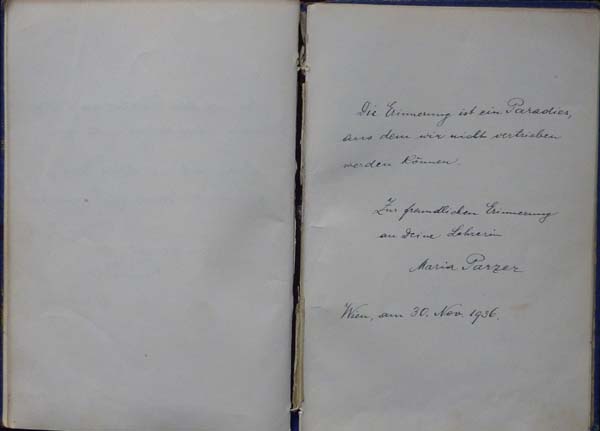 Die Erinnerung ist ein Paradies,
aus dem wir nicht vertrieben
werden können.
Zur freundlichen Erinnerung
an Deine Lehrerin
Maria Parzer
Wien, am 30. Nov. 1936.